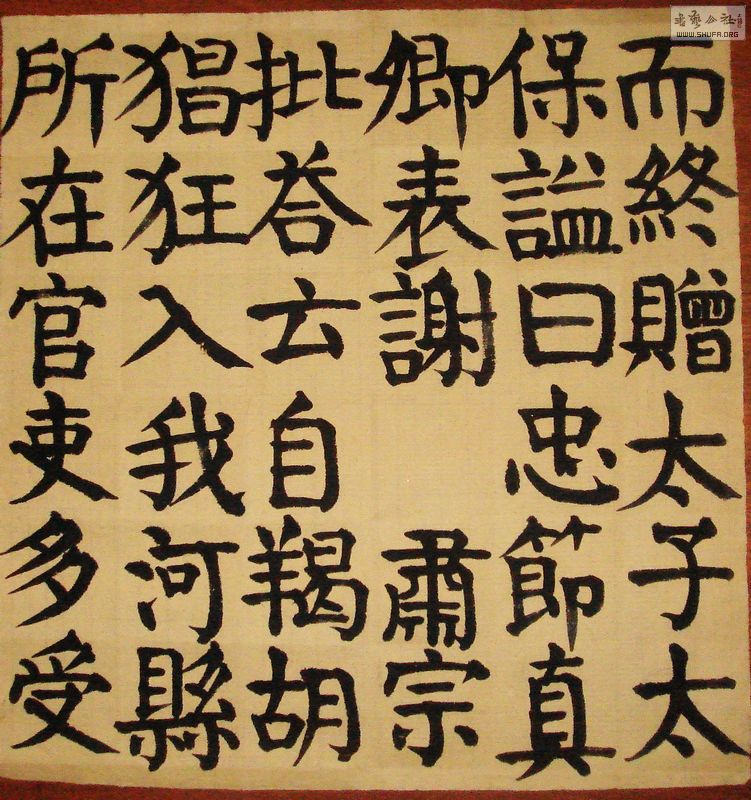 而終贈太子太
保謚曰忠節真
卿表謝 肅宗
批荅云自羯胡
猖狂入我河縣
所在官吏多受
WWW.SHUFA.ORG